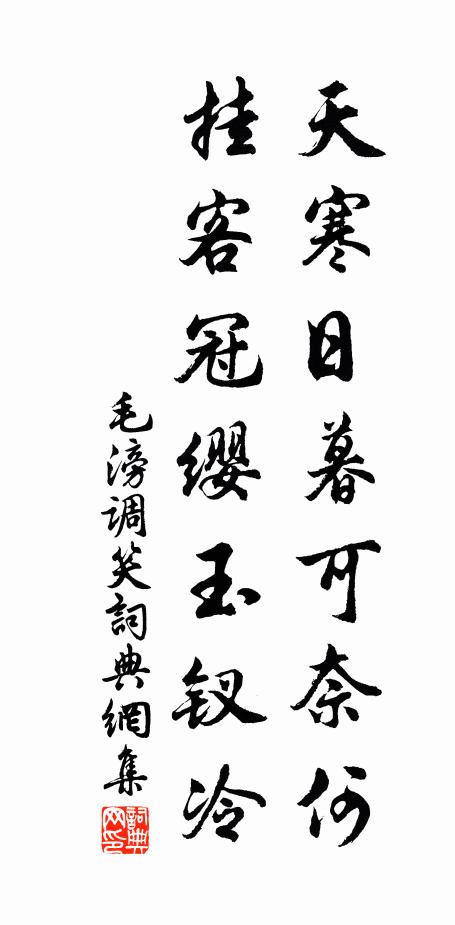 天寒日暮可奈何
挂客冠缨玉钗冷
毛滂调笑詞典網集
詞典网印